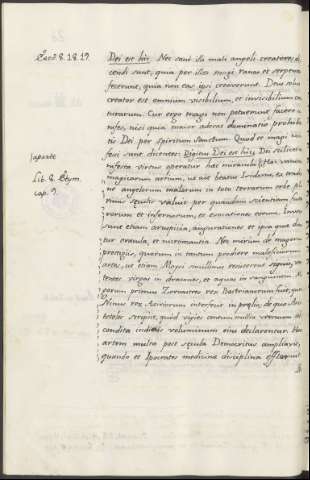 Exod. 8.18.19.
Dei est hic. Nec sunt isti mali angeli creatores di-
cendi sunt, quia per illos magi ranas et serpentes
fecerunt, quia non eas ipsi creaverunt. Deus solus
creator est omnium visibilium, et invisibilium cre-
aturarum. Cur ergo magi non potuerunt facere
nisi quia maior aderat dominatio prohiben-
tis Dei per spiritum sanctum. Quod et magi con-
fessi sunt dicentes: Digitus Dei est hic. Dei scilicet
virtus operatur haec mirabilia. Haec vanitas
magicarum artium, ut ait beatus Isidorus, ex tradi-
tione angelorum malorum in toto terrarum orbe plu-
rimis seculis valuit per quandam scientiam futu-
rorum et infernorum, et evocationes eorum. Inven-
ta sunt etiam aruspicia, augurationes et ipsa quae dicun-
tur oracula, et necromantia. Nec mirum de magorum
prestigiis, quorum in tantum prodiere maleficiorum
artes, ut etiam Moysi simillimis resisterent signis, ver-
tentes virgas in dracones, et aquas in sanguinem
primus Zoroastres rex Bactrianorum fuit, quem
Ninus rex Assiriorum interfecit in prelio, de quo Aris-
toteles scripsit, quod vigies centum millia versuum ab eo
condita indiciis voluminum eius declarentur. Hanc
artem multa post secula Democritus ampliavit,
quando et Ipocrates medicinae disciplina effloruit
Lib. 8. Etym.
cap. 9.